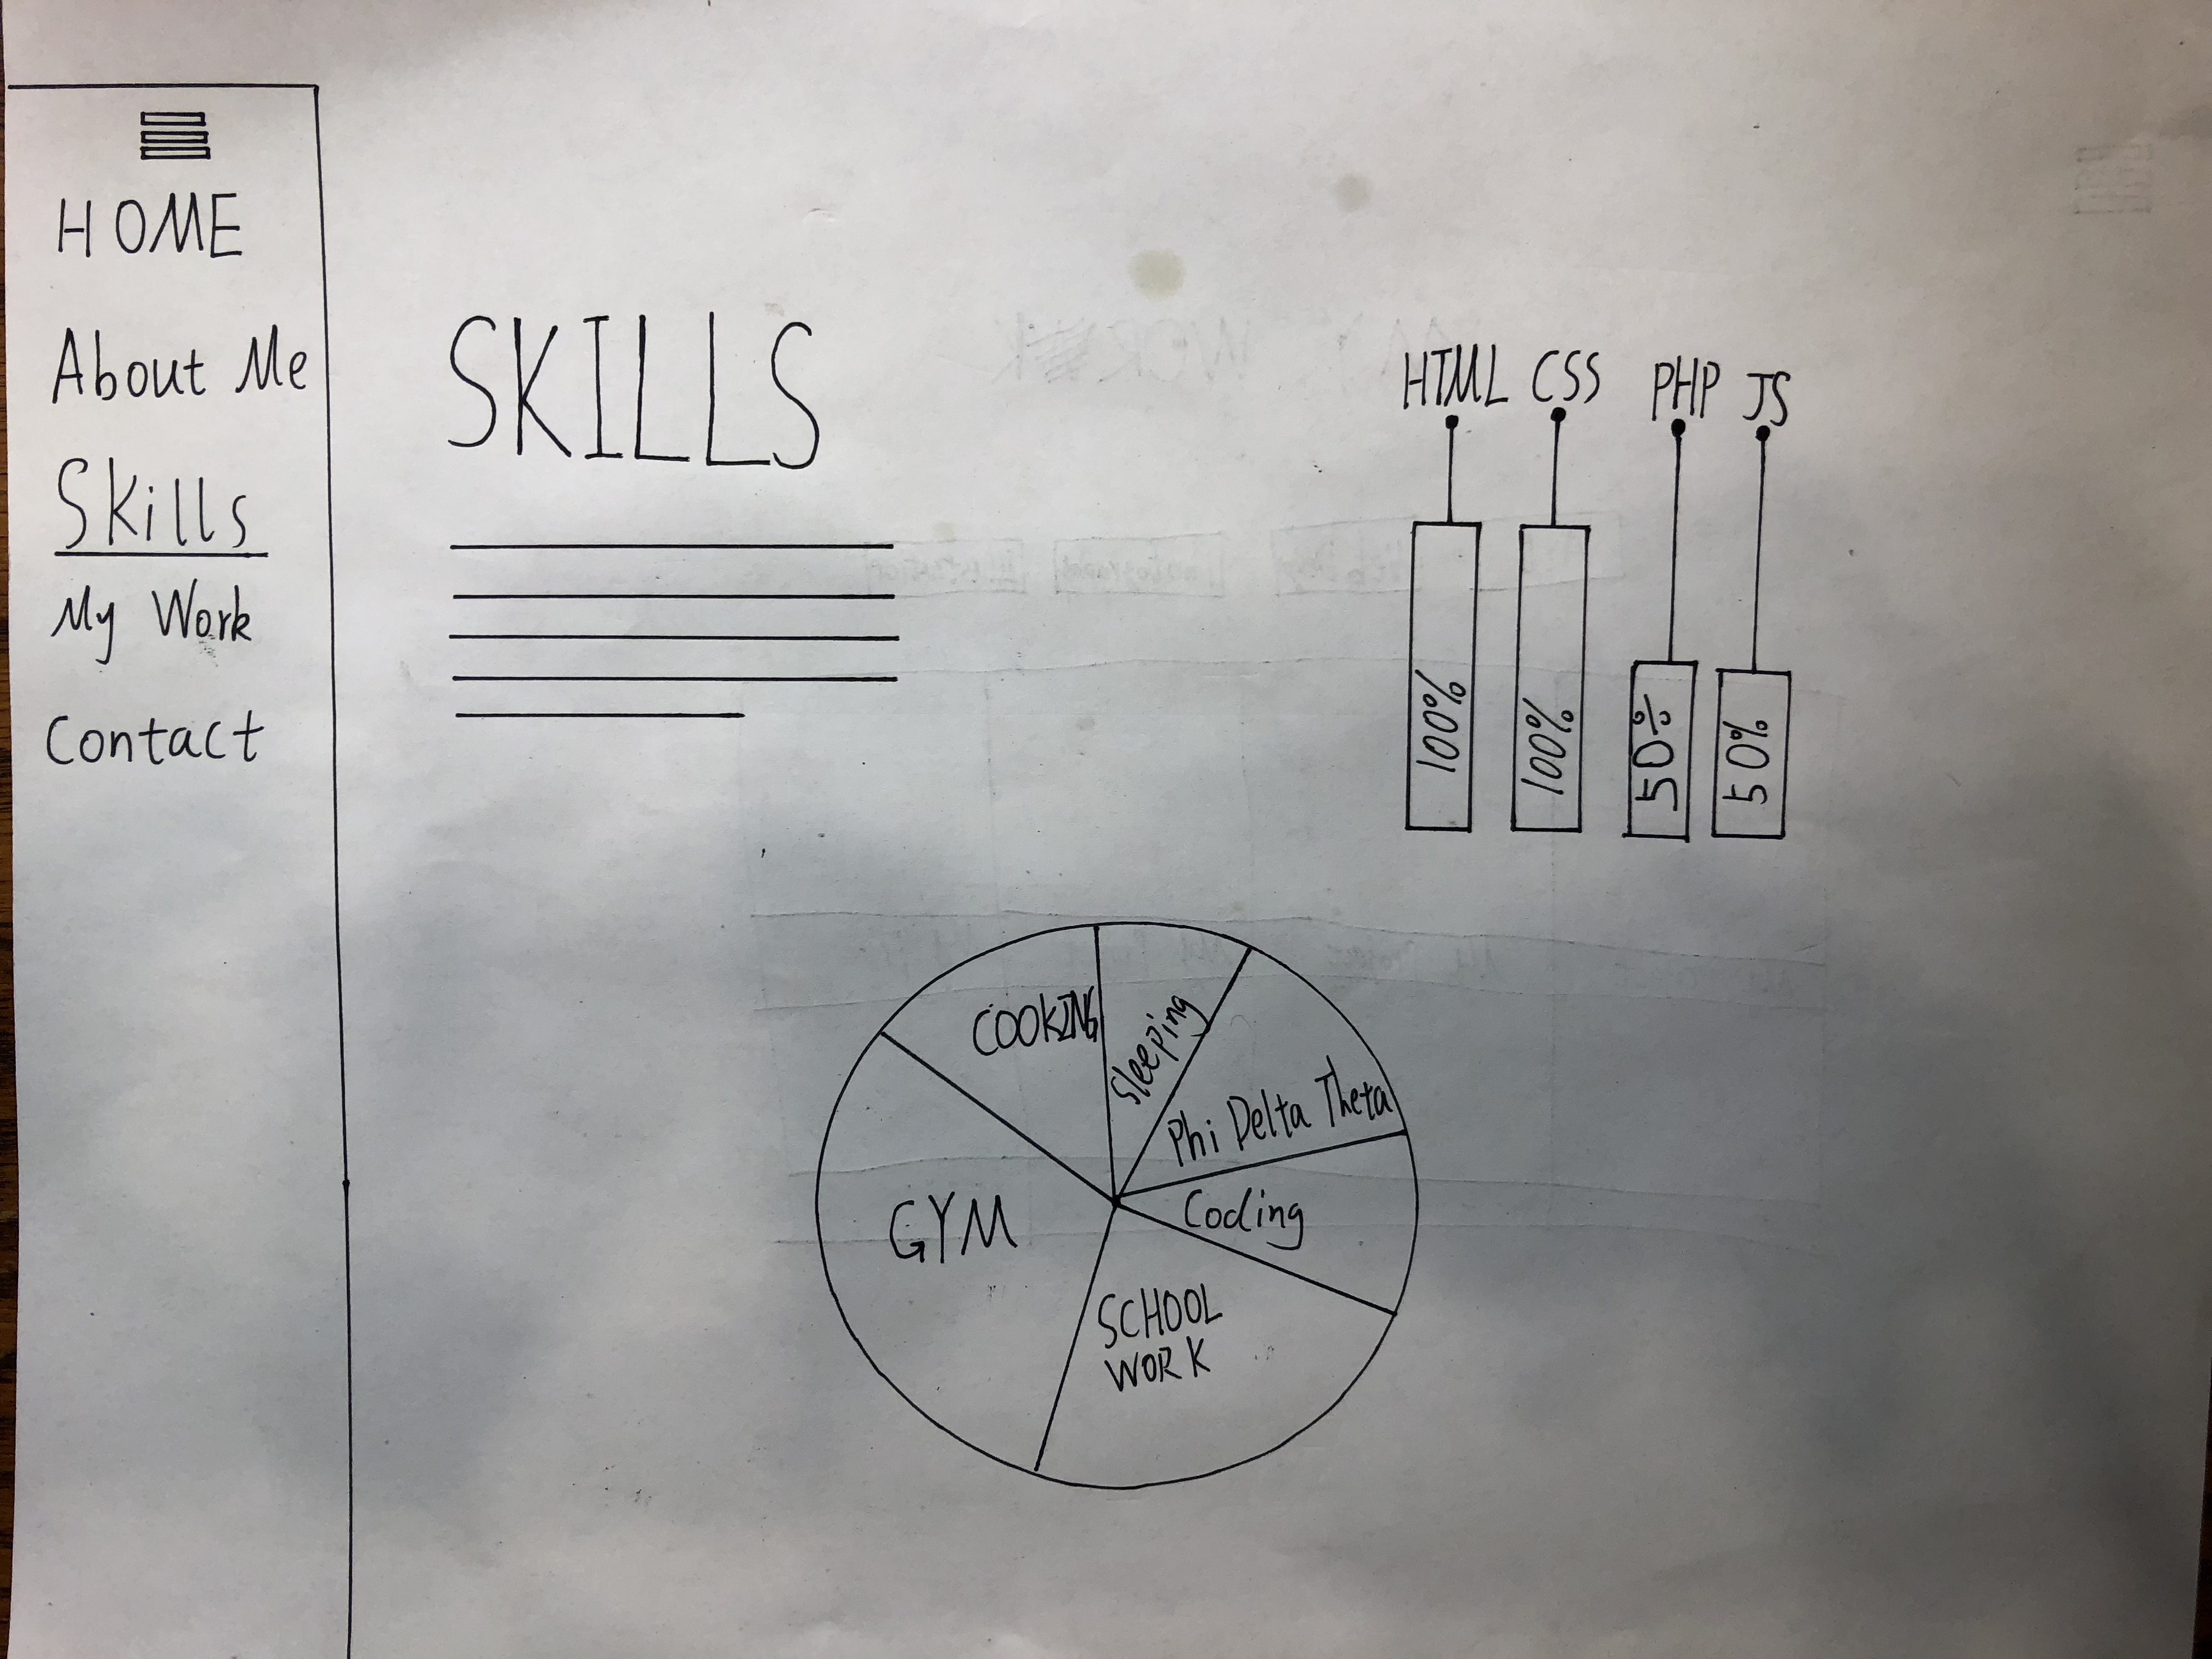 HOME
About Me
Skills
My Work
Contact
SKILLS
HTML CSS PHP JS
100% 100% 50% 50%
COOKING
Sleeping
Phi Delta Theta
Coding
GYM
SCHOOL
WORK